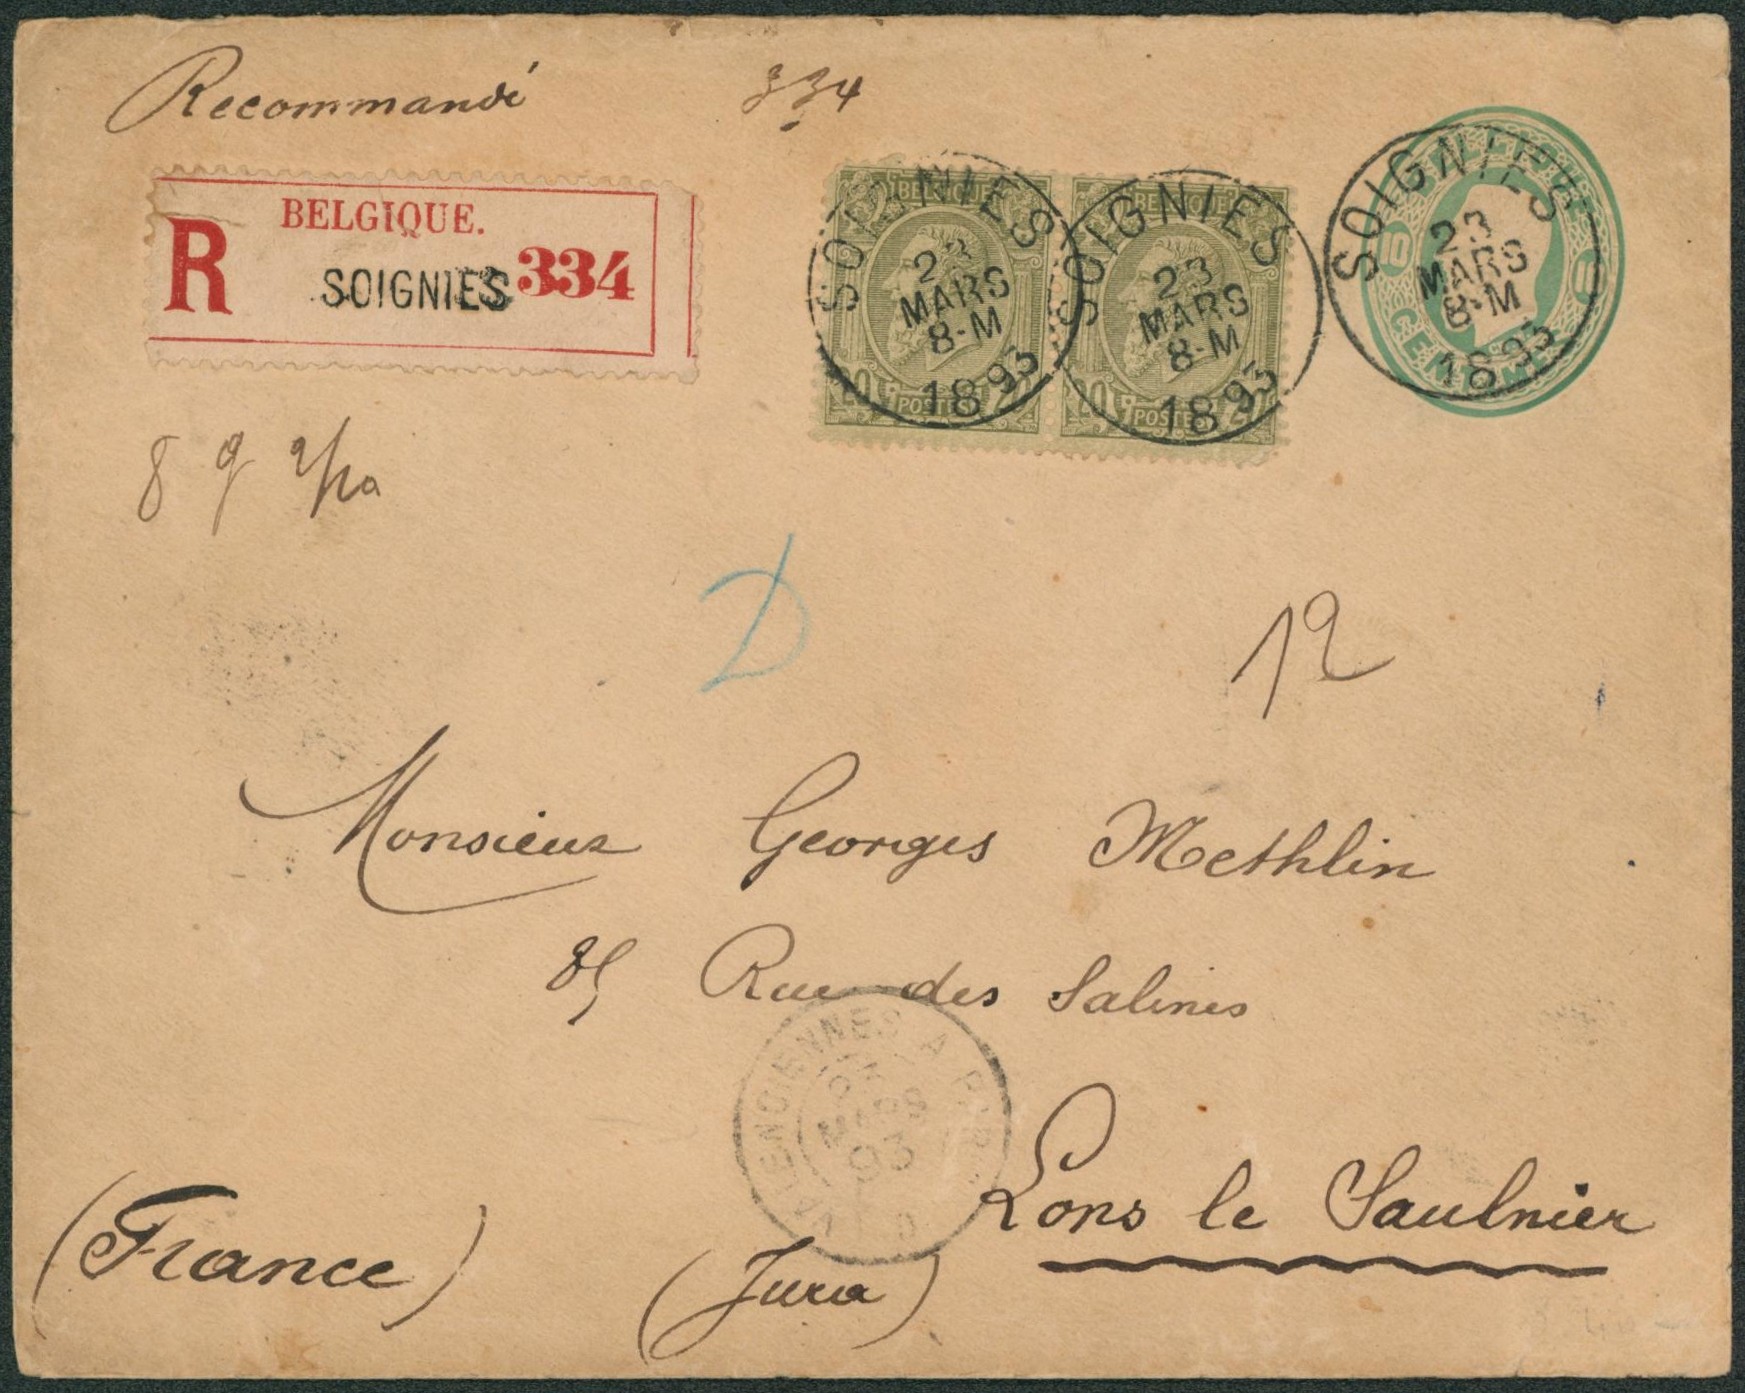 Recommandé 334
BELGIQUE.
R SOIGNIES 334
BELGIQUE
20 POSTES 20
SOIGNIES
23
MARS
8-M
1893
BELGIQUE
20 POSTES 20
SOIGNIES
23
MARS
8-M
1893
10
CENTIMES
SOIGNIES
23
MARS
8-M
1893
8 g
D
12
Monsieur Georges Methlin
85 Rue des Salines
VALENCIENNES A PARIS
23
MARS
93
Lons le Saulnier
(France) (Jura)